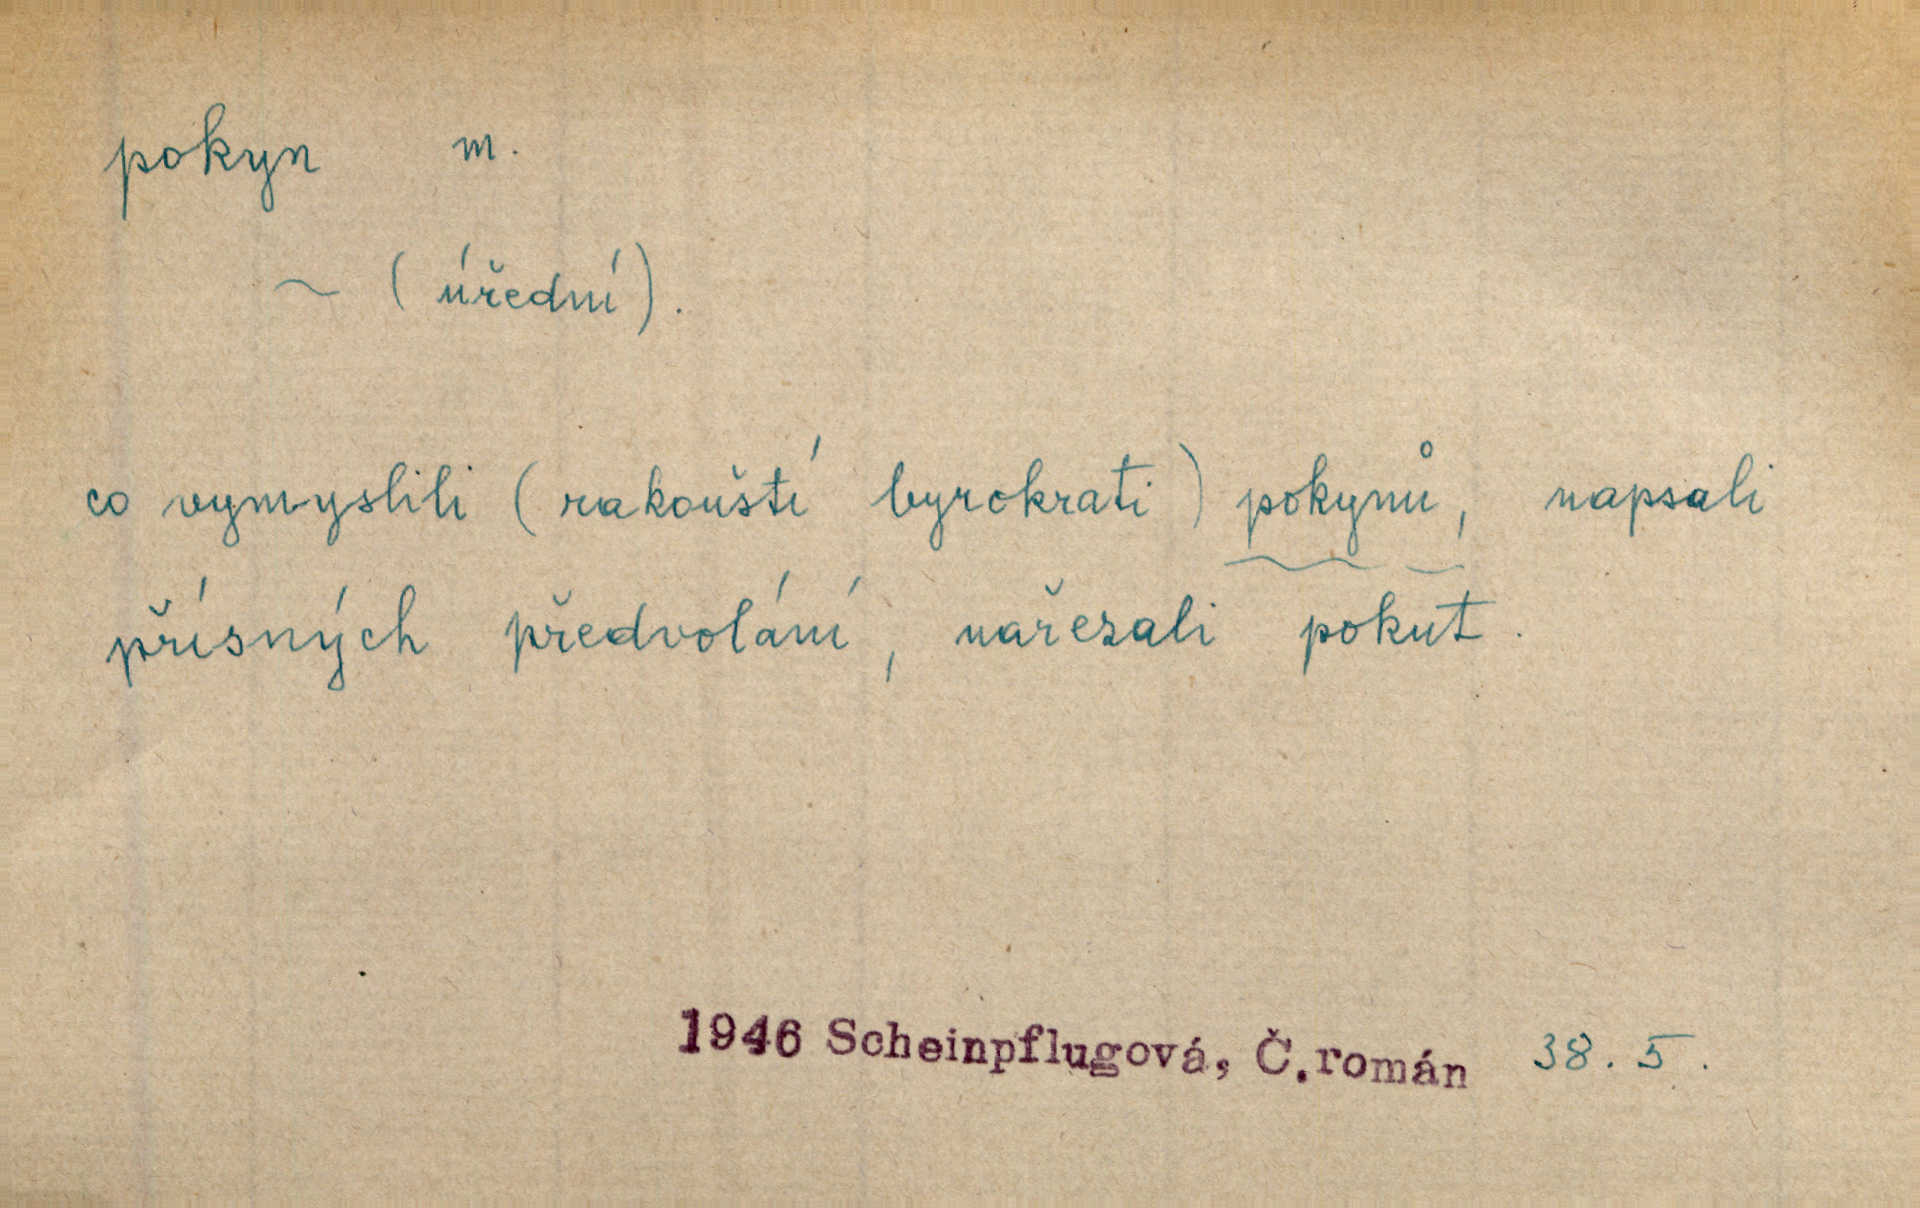 pokyn m.
~ (úřední).
co vymyslili (rakouští byrokrati) pokynů, napsali
přísných předvolání, nařezali pokut.
1946 Scheinpflugová, Č.román 38.5.